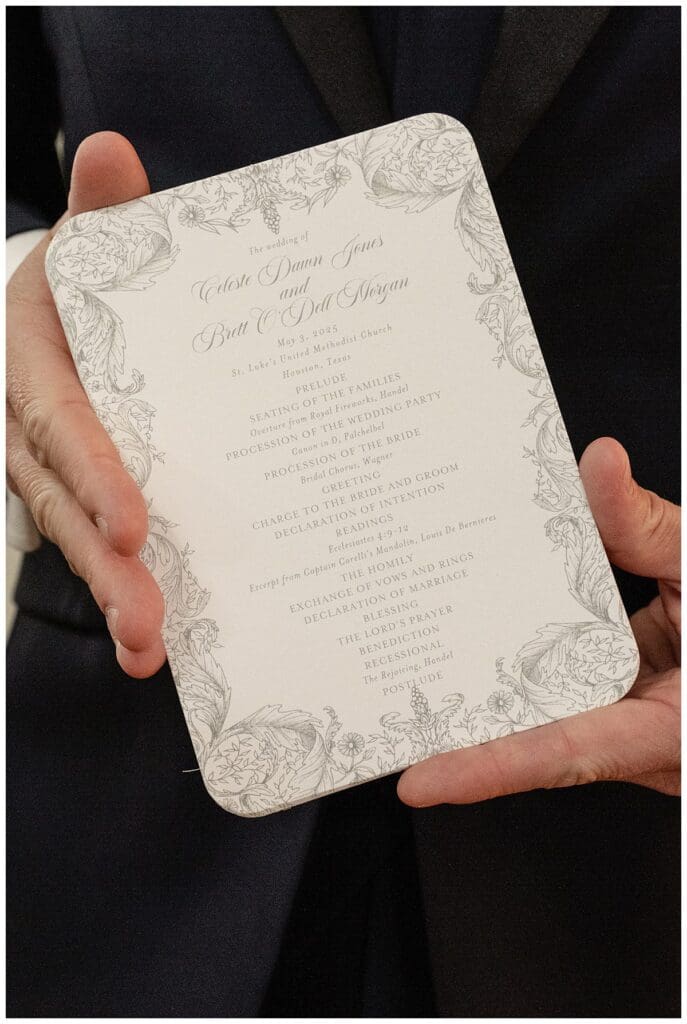 The wedding of
Celeste Dawn Jones
and
Brett O'Dell Morgan
May 3, 2025
St. Luke's United Methodist Church
Houston, Texas
PRELUDE
SEATING OF THE FAMILIES
Overture from Royal Fireworks, Handel
PROCESSION OF THE WEDDING PARTY
Canon in D, Palchelbel
PROCESSION OF THE BRIDE
Bridal Chorus, Wagner
GREETING
CHARGE TO THE BRIDE AND GROOM
DECLARATION OF INTENTION
READINGS
Ecclesiastes 4:9-12
Excerpt from Captain Corelli's Mandolin, Louis De Bernieres
THE HOMILY
EXCHANGE OF VOWS AND RINGS
DECLARATION OF MARRIAGE
BLESSING
THE LORD'S PRAYER
BENEDICTION
RECESSIONAL
The Rejoicing, Handel
POSTLUDE